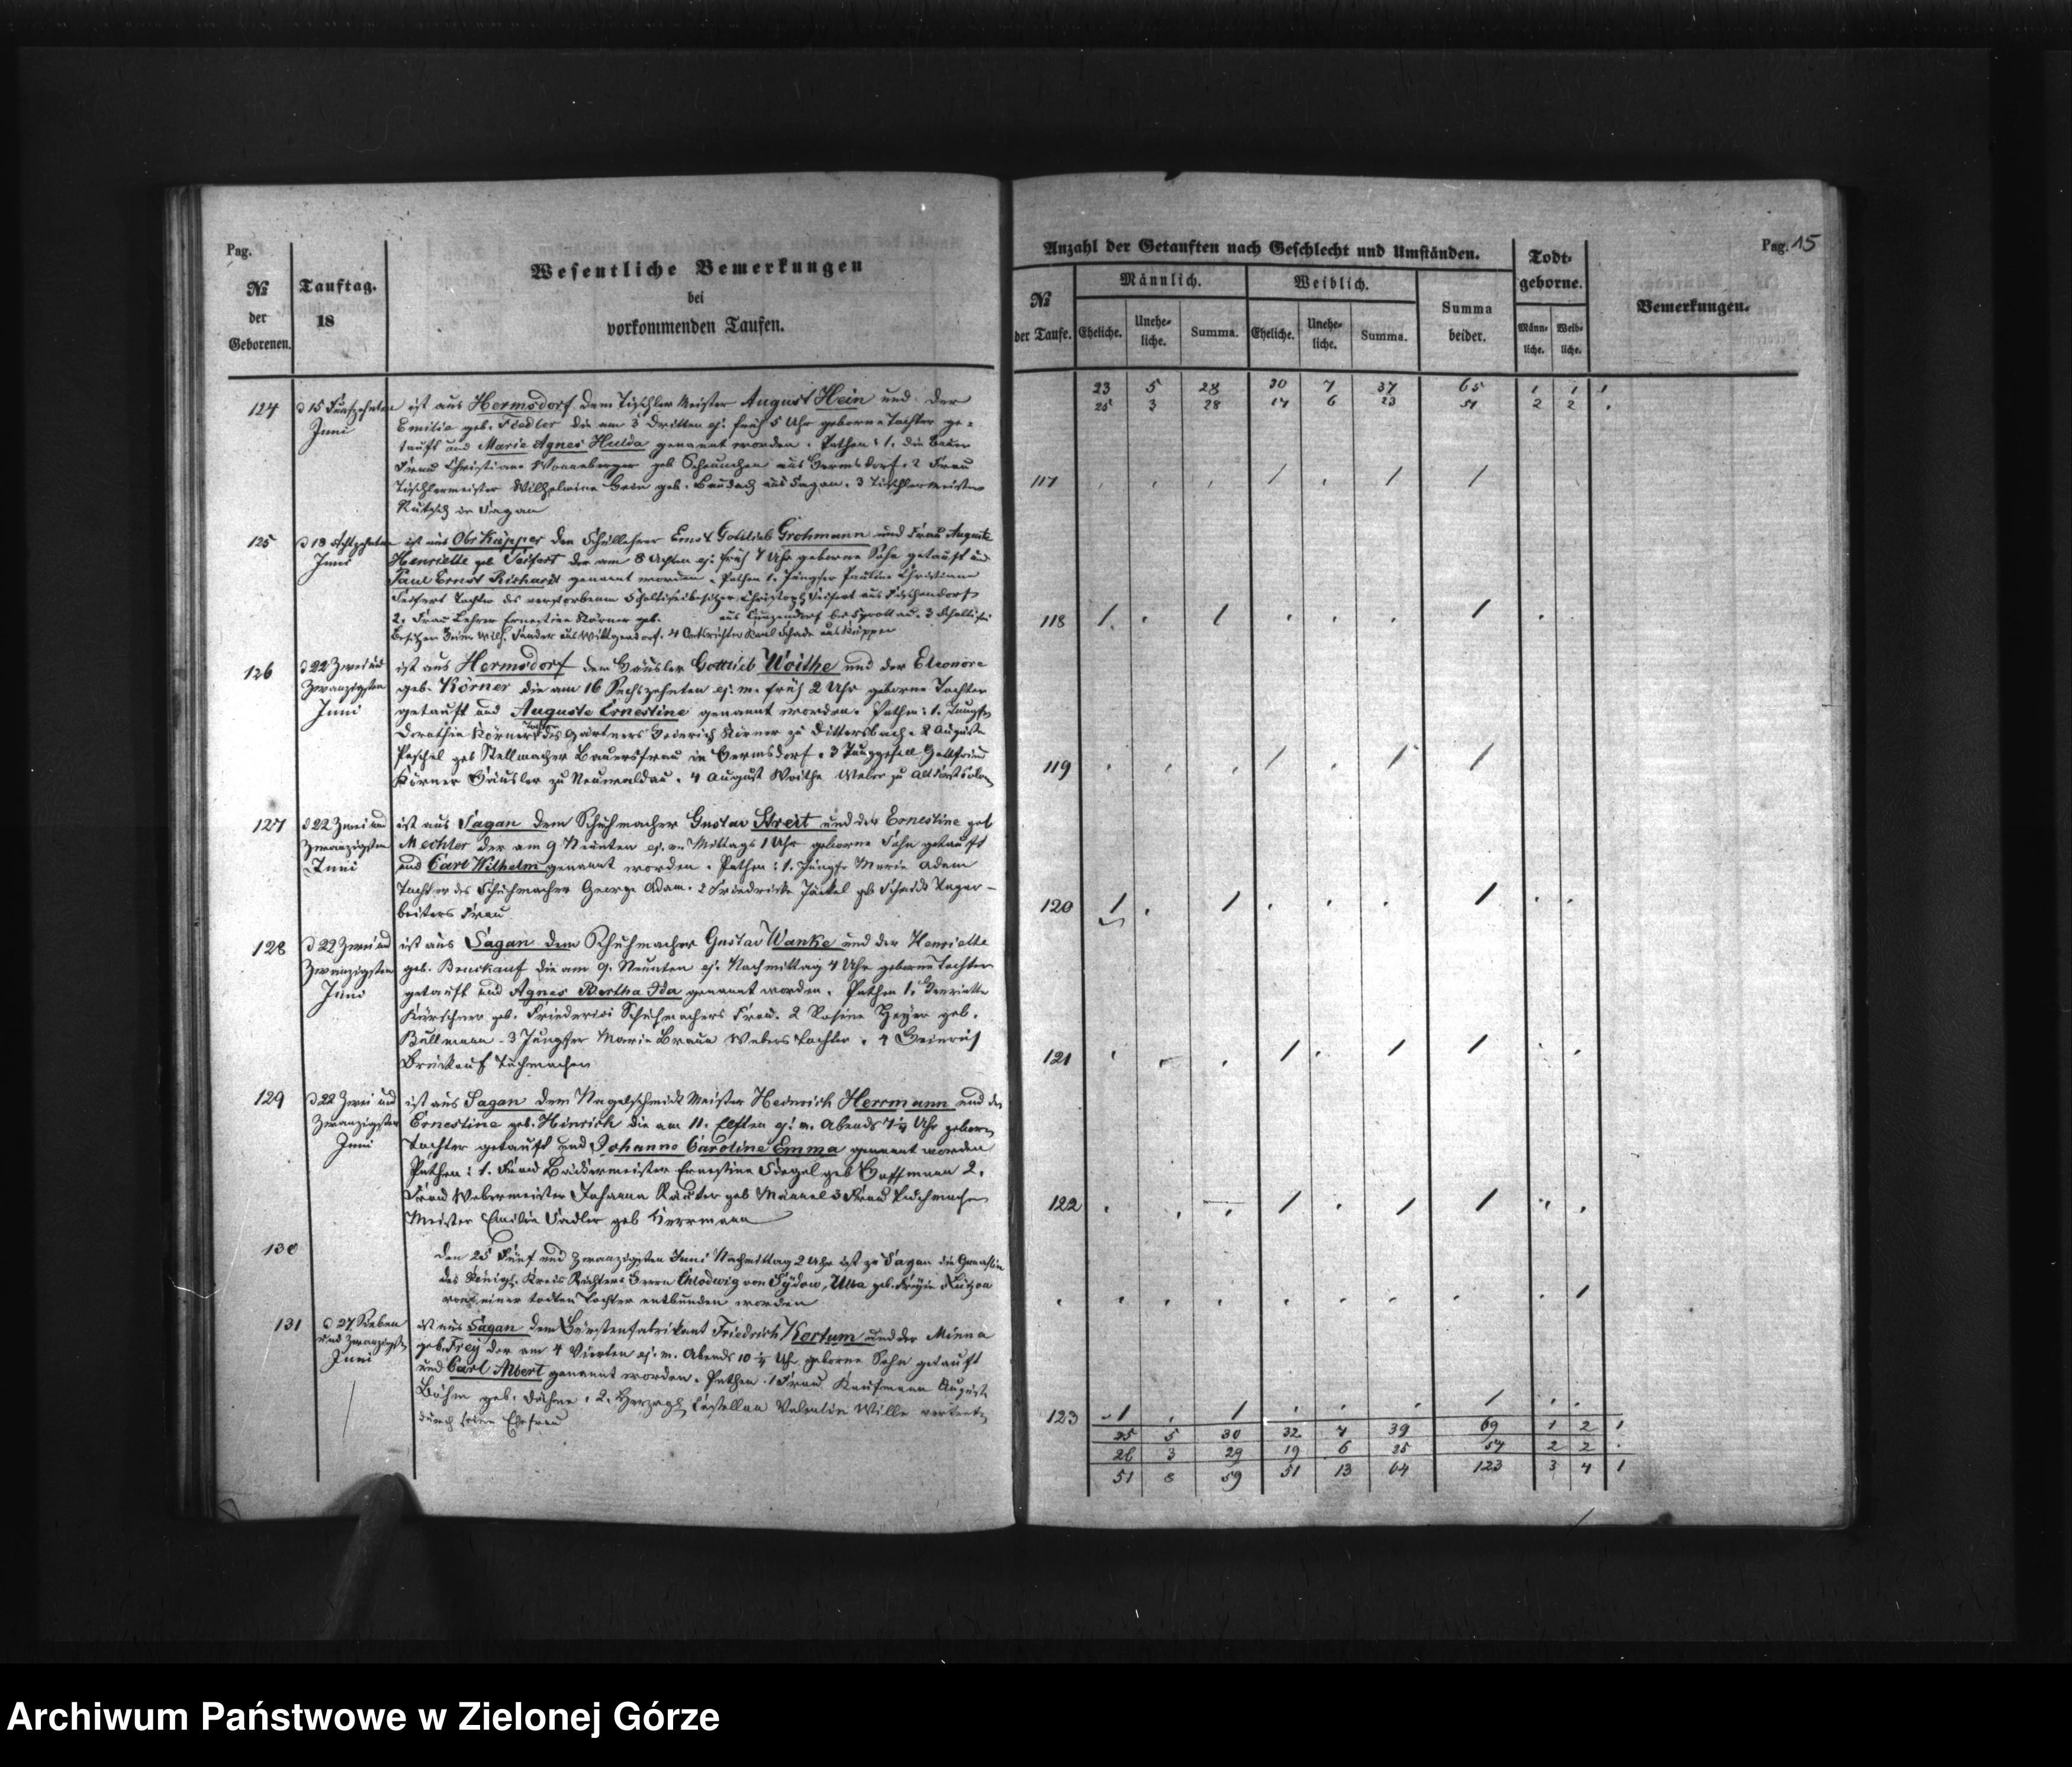 Pag.
№ der Geborenen.
Tauftag. 18
Wesentliche Bemerkungen
bei
vorkommenden Taufen.
124
d 15 Fünfzehnten
Juni
ist aus Hermsdorf dem Tischler Meister August Hein und der
Emilie geb. Fiedler die am 3 Dritten ej. früh 5 Uhr geborne Tochter ge=
tauft und Marie Agnes Hulda genannt worden. Pathen: 1. die Bauer
Frau Christiane Wonneberger geb aus Hermsdorf. 2 Frau
Tischlermeister Wilhelmine Hein geb. aus Sagan. 3 Tischlermeister
in Sagan
125
d 18 Achtzehnten
Juni
ist aus Obr Küpper dem Schullehrer Ernst Gottlieb Grohmann und Frau Auguste
Henriette geb Seifert der am 8 Achten ej. früh 7 Uhr geborne Sohn getauft und
Paul Ernst Richard genannt worden. Pathen 1. Jungfer Pauline Christiane
Seifert Tochter des verstorbenen Scholtiseibesitzer Christoph Seifert aus
2. Frau Lehrer Ernestine Körner geb. aus Kunzendorf bei Sprottau. 3 Scholtisei
Besitzer Wilh. Sander aus Wittgendorf. 4 Ortsrichter Karl Schade aus Küpper
126
d 22 Zwei und
Zwanzigsten
Juni
ist aus Hermsdorf dem Häusler Gottlieb Woithe und der Eleonore
geb. Körner die am 16 Sechszehnten ej. m. früh 2 Uhr geborne Tochter
getauft und Auguste Ernestine genannt worden. Pathen: 1. Jungfer
Dorothea Körner Tochter des Gärtners Heinrich Körner zu Dittersbach. 2 Auguste
Peschel geb Stellmacher Bauersfrau in Hermsdorf. 3 Junggesell Gottfried
Körner Häusler zu Neuwaldau. 4 August Woithe Weber zu
127
d 22 Zwei und
Zwanzigsten
Juni
ist aus Sagan dem Schuhmacher Gustav Streit und der Ernestine geb
Mechler der am 9 Neunten ej. m. Mittags 1 Uhr geborne Sohn getauft
und Carl Wilhelm genannt worden. Pathen: 1. Jungfr Marie Adam
Tochter des Schuhmacher George Adam. 2 Friedricke Jäckel geb Schmidt Tagar-
beiters Frau
128
d 22 Zwei und
Zwanzigsten
Juni
ist aus Sagan dem Schuhmacher Gustav Wanke und der Henriette
geb. Bruskauf die am 9. Neunten ej. Nachmittag 4 Uhr geborne Tochter
getauft und Agnes Bertha Ida genannt worden. Pathen 1. Henriette
Kürschner geb. Friederici Schuhmachers Frau. 2 Rosine Heyer geb.
Bullmann - 3 Jungfer Marie Braun Webers Tochter. 4 Heinrich
Bruskauf Tuchmacher
129
d 22 Zwei und
Zwanzigsten
Juni
ist aus Sagan dem Nagelschmidt Meister Heinrich Herrmann und der
Ernestine geb. Hinrich die am 11. Elften ej. m. Abends Uhr geborne
Tochter getauft und Johanne Caroline Emma genannt worden
Pathen: 1. Frau Bäckermeister Ernestine Siegel geb Hoffmann 2.
Frau Webermeister Johanna geb Männel 3 Frau Tuchmacher
Meister Emilie Sadler geb Herrmann
130
den 25 Fünf und zwanzigsten Juni Nachmittag 2 Uhr ist zu Sagan die Gemahlin
des Königl. Kreis Richters Herrn Chlodwig von Sydow, geb. Freyin Lützow
von einer todten Tochter entbunden worden
131
d 27 Sieben
und Zwanzigsten
Juni
ist aus Sagan dem Bürstenfabrikant Friedrich Kortum und der Minna
geb. Frey der am 4 Vierten ej. m. Abends 10 Uhr geborne Sohn getauft
und Carl Albert genannt worden. Pathen. 1 Frau Kaufmann Auguste
Böhm geb. 2. Herzogl Castellan Valentin Wille vertreten
durch seine Ehefrau
Pag. 15
Anzahl der Getauften nach Geschlecht und Umständen.
№ der Taufe.
Männlich.
Eheliche. Unehe=liche. Summa.
Weiblich.
Eheliche. Unehe=liche. Summa.
Summa beider.
Todt=geborne.
Männ=liche. Weib=liche.
Bemerkungen.
23 5 28 30 7 37 65 1 1 1
25 3 28 17 6 23 51 2 2 .
117 . . . 1 . 1 1
118 1 . 1 . . . 1 .
119 . . . 1 . 1 1
120 1 . 1 . . . 1 . .
121 . . . 1 . 1 1 . .
122 . . . 1 . 1 1 . .
. . . . . . . . . 1
123 1 . 1 . . . 1 . .
25 5 30 32 7 39 69 1 2 1
26 3 29 19 6 25 54 2 2 .
51 8 59 51 13 64 123 3 4 1
Archiwum Państwowe w Zielonej Górze